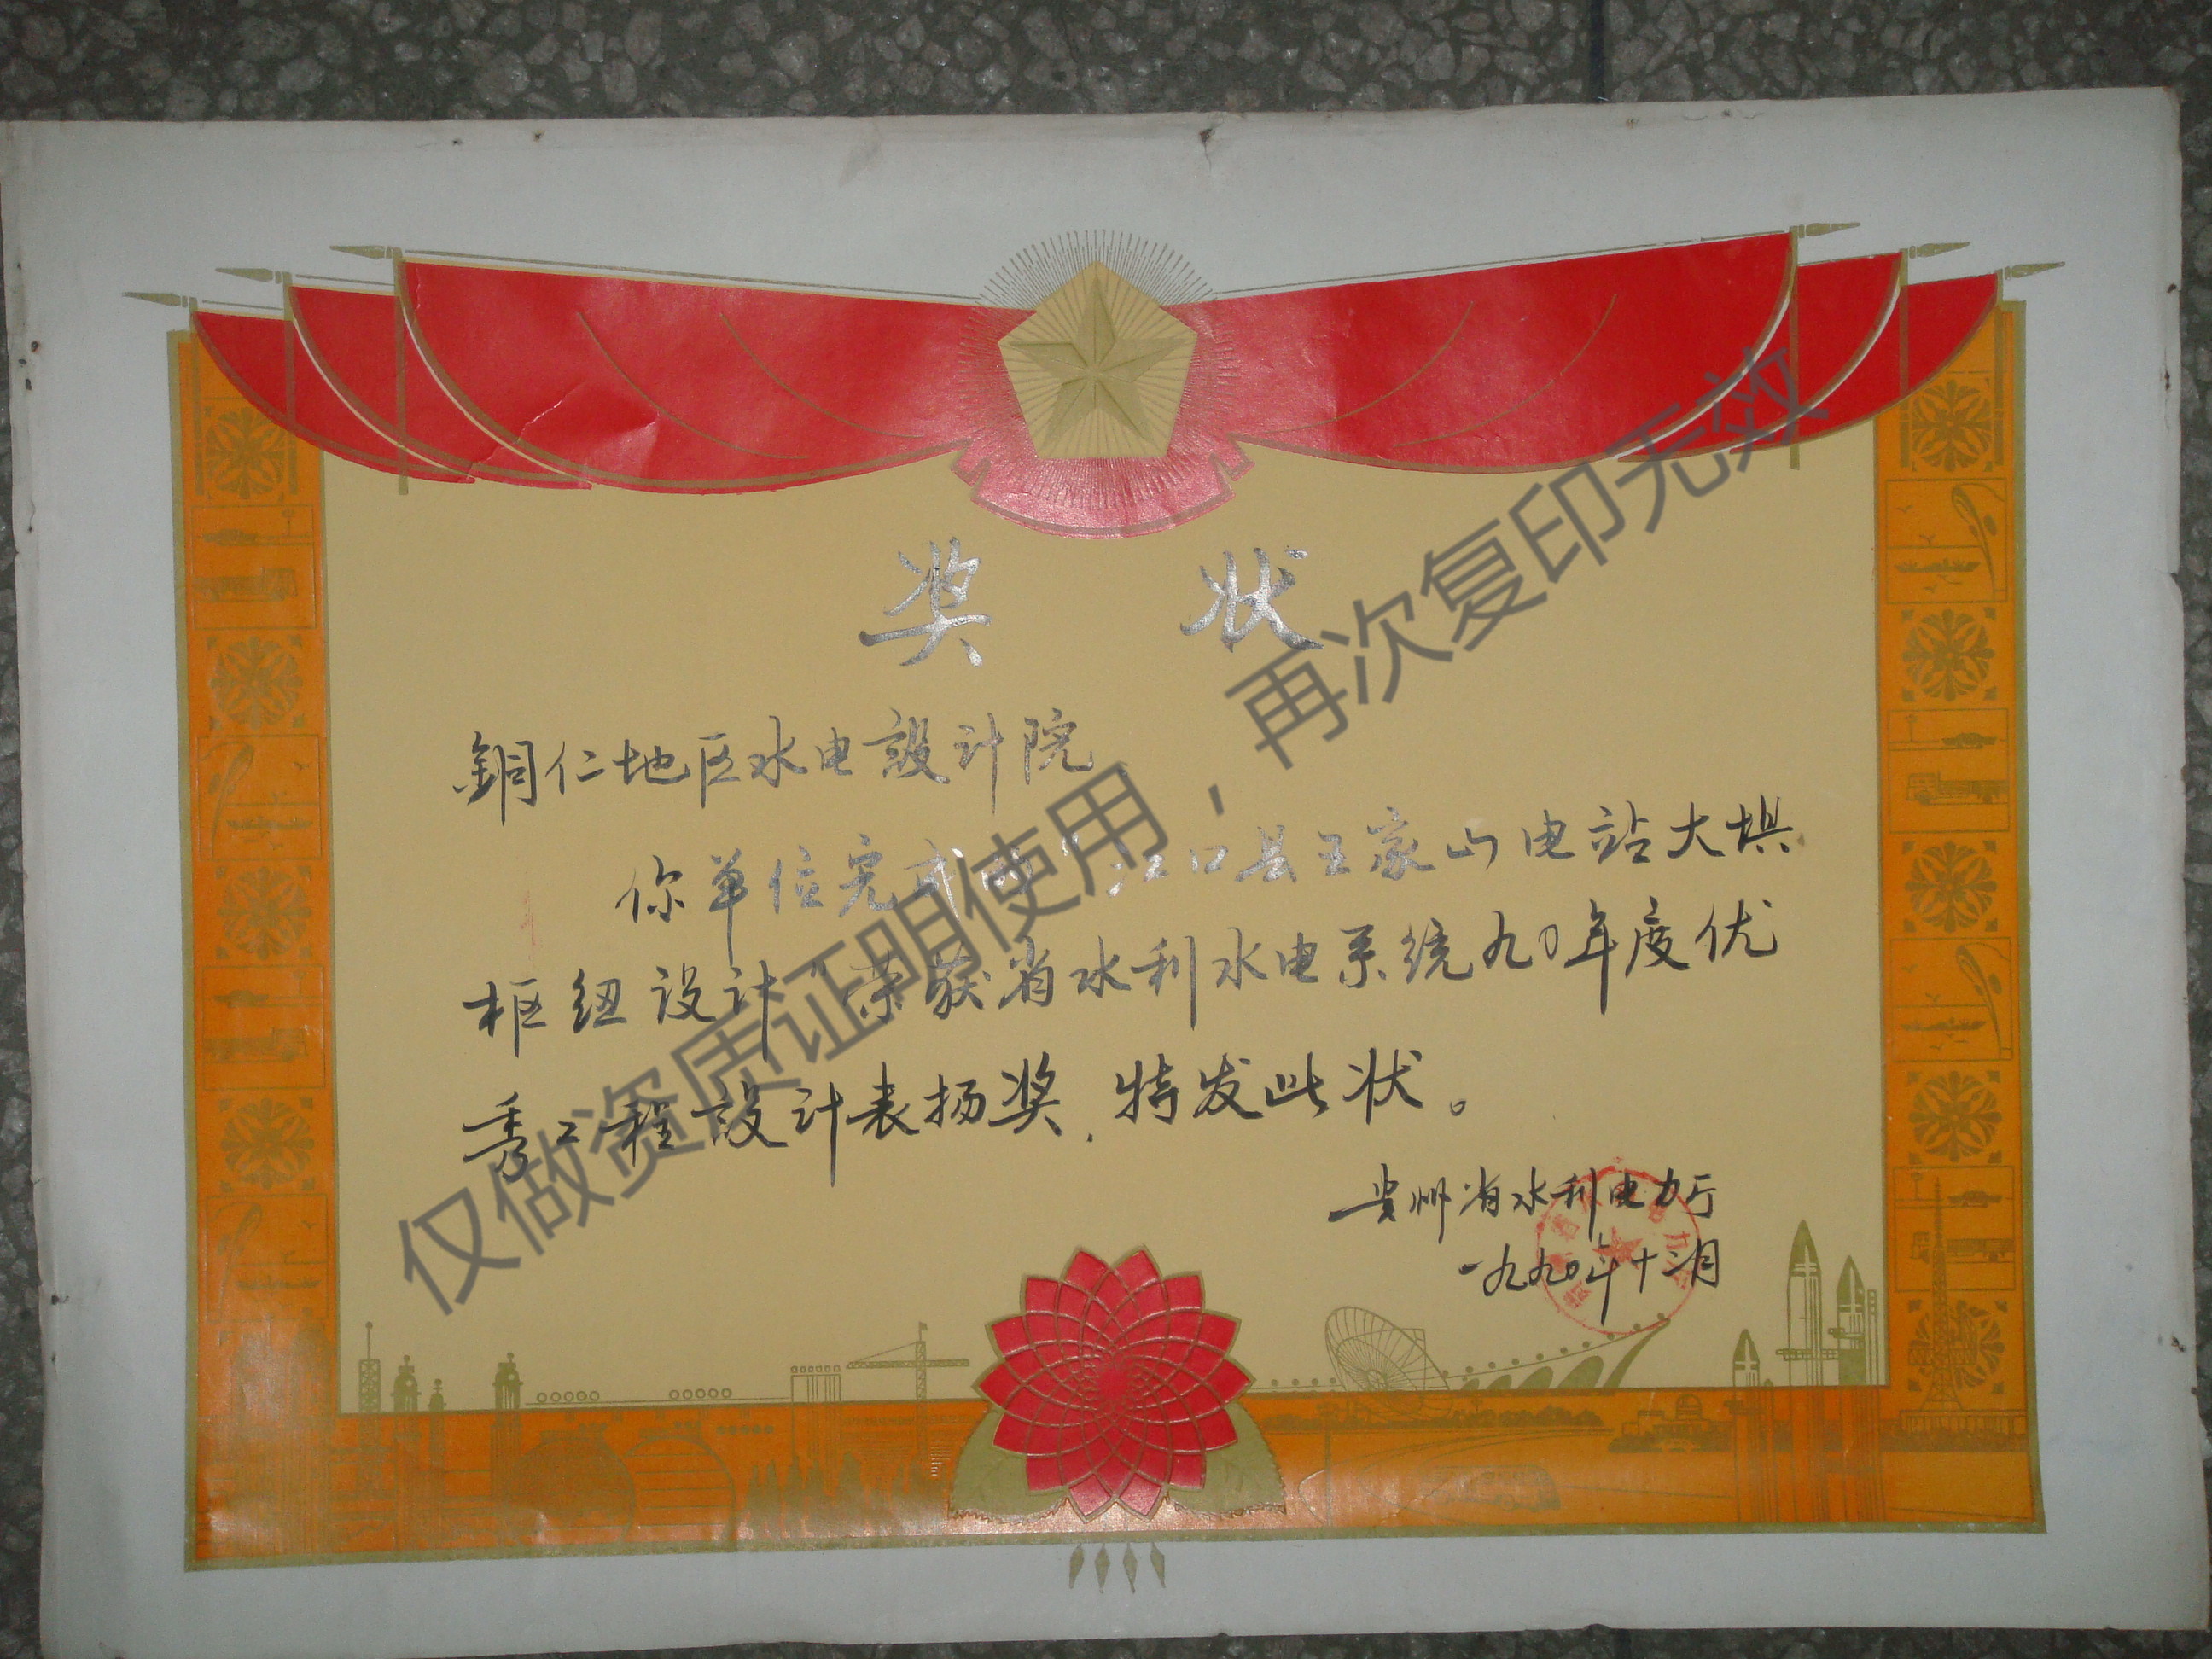 奖 状
銅仁地区水电設计院
你单位完成的"江口县王家山电站大坝
枢纽设计"荣获省水利水电系统九〇年度优
秀工程設计表扬奖,特发此状。
贵州省水利电力厅
一九九〇年十二月
仅做资质证明使用，再次复印无效